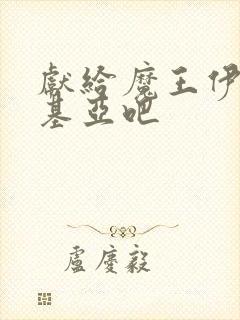 獻給魔王伊
基亞吧
盧慶毅